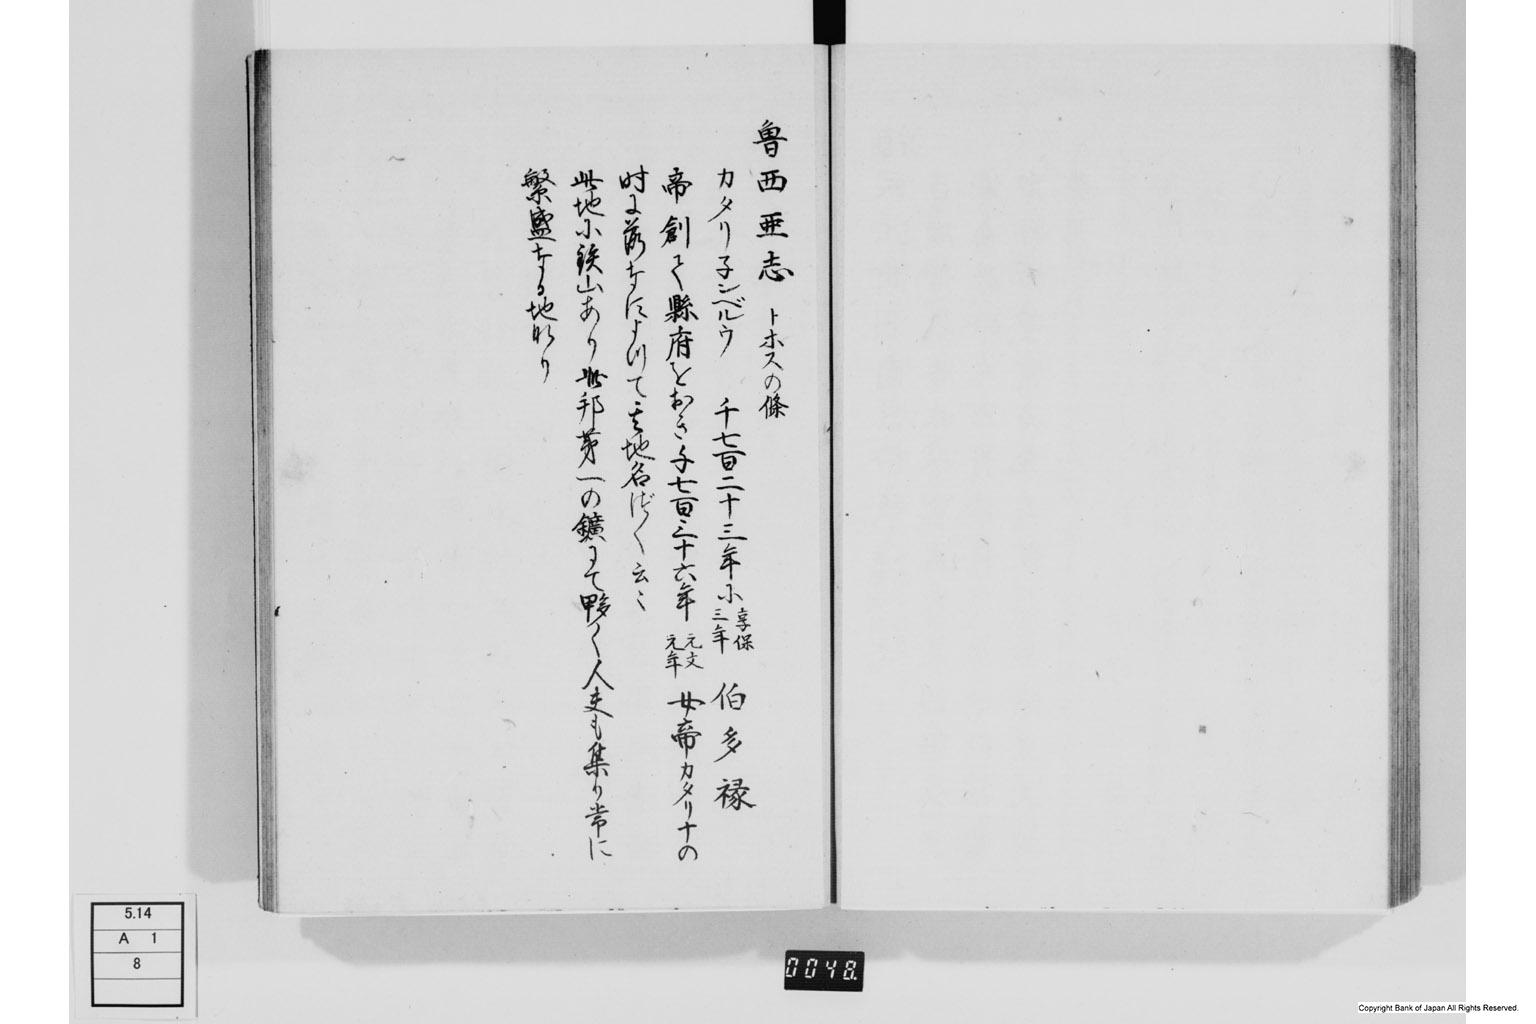 魯西亜志 トホスの條
カタリ子ンベルウ 千七百二十三年小享保三年 伯多禄
帝創て縣府をおき千七百三十六年元文元年女帝カタリナの
时に落なによつて其地名づく云々
此地小鉄山あり此邦第一の鑛にて夥く人夫も集り常に
繁盛なる地なり
5.14
A 1
8
0048.
Copyright Bank of Japan All Rights Reserved.